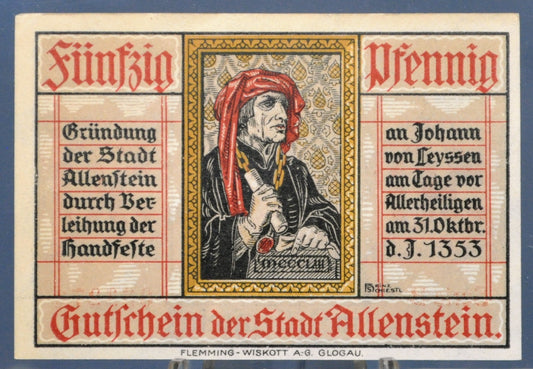 Fünfzig
Pfennig
Gründung
der Stadt
Allenstein
durch Ver-
leihung der
Handfeste
an Johann
von Leyssen
am Tage vor
Allerheiligen
am 31.Oktbr.
d.J. 1353
Gutschein der Stadt Allenstein.
FLEMMING-WISKOTT A-G. GLOGAU.